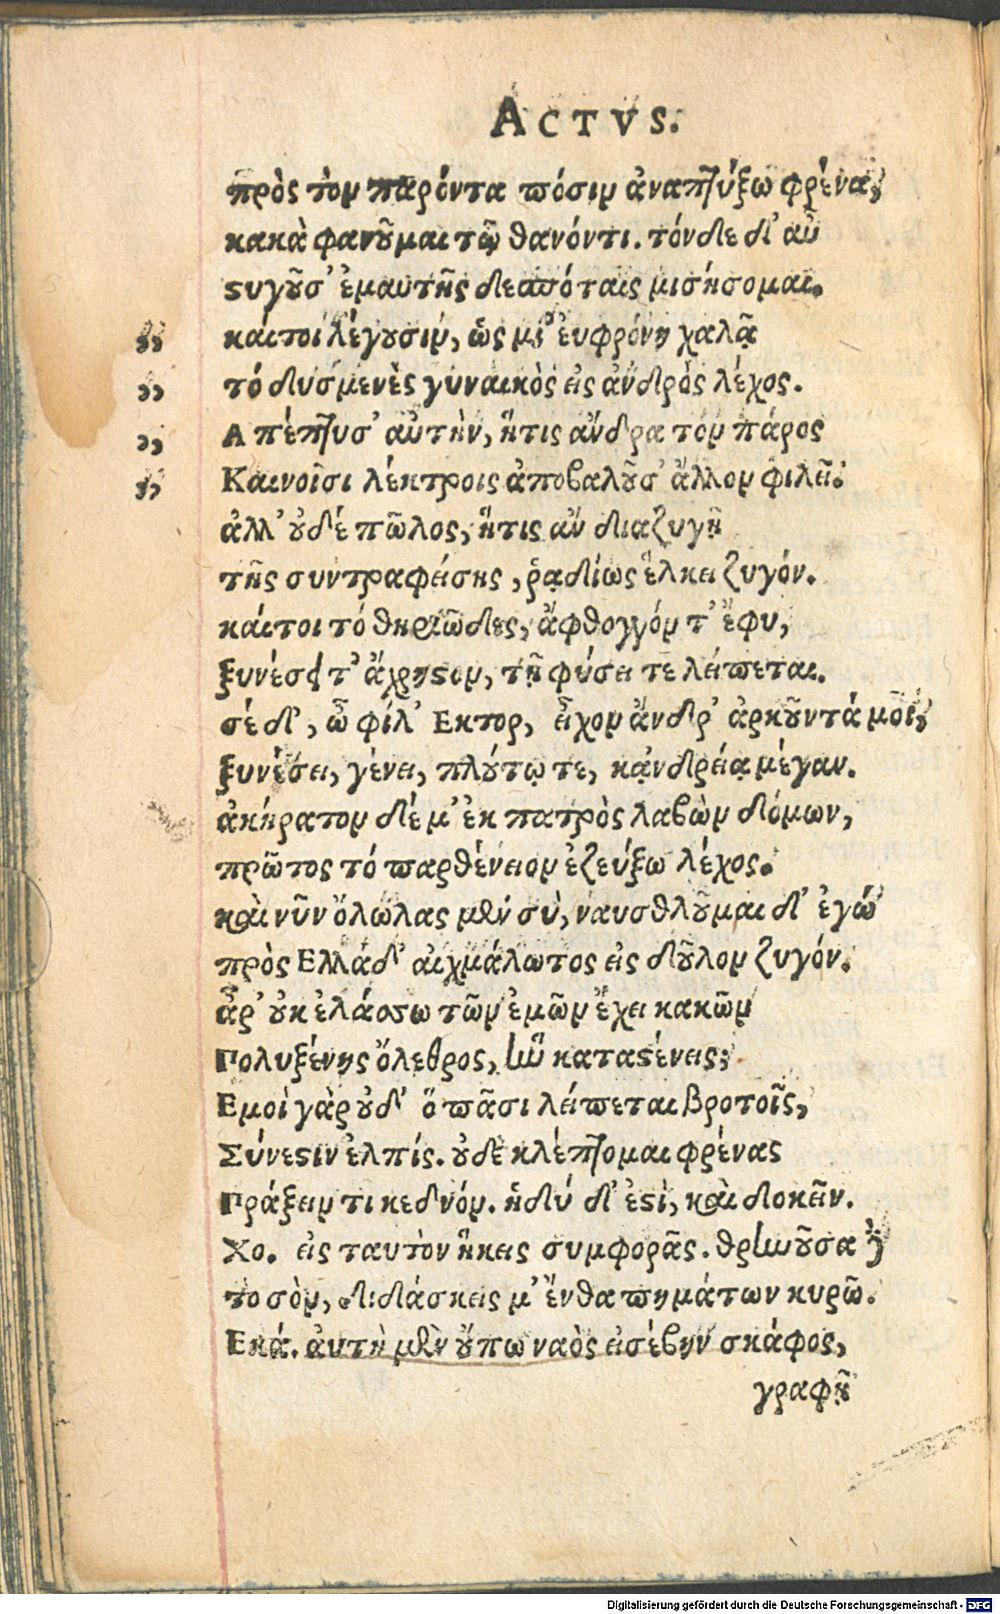 ACTVS.
πρὸς τὸν παρόντα πόσιν ἀναπτύξω φρένα,
κακὰ φανοῦμαι τῷ θανόντι. τόνδε δ' αὖ
στυγοῦσ' ἐμαυτῆς δεσπόταις μισήσομαι.
καίτοι λέγουσιν, ὡς μί' ἐυφρόνη χαλᾷ
τό δυσμενὲς γυναικὸς εἰς ἀνδρὸς λέχος.
Απέπτυσ' αὐτὴν, ἥτις ἄνδρα τόν πάρος
Καινοῖσι λέκτροις ἀποβαλοῦσ' ἄλλον φιλεῖ.
ἀλλ' οὐδέ πῶλος, ἥτις ἂν διαζυγῇ
τῆς συντραφείσης, ῥᾳδίως ἕλκει ζυγόν.
καίτοι τό θηριῶδες, ἄφθογγόν τ' ἔφυ,
ξυνέσει τ' ἄχρηστον, τῇ φύσει τε λείπεται.
σέ δ', ὦ φίλ' Εκτορ, εἶχον ἄνδρ' ἀρκοῦντά μοί,
ξυνέσει, γένει, πλούτῳ τε, κᾀνδρείᾳ μέγαν.
ἀκήρατον δέ μ' ἐκ πατρὸς λαβὼν δόμων,
πρῶτος τό παρθένειον ἐζεύξω λέχος.
καὶ νῦν ὄλωλας μὲν σὺ, ναυσθλοῦμαι δ' ἐγώ
πρὸς Ελλάδ' αἰχμάλωτος εἰς δοῦλον ζυγόν.
ἆρ' οὐκ ἐλάσσω τῶν ἐμῶν ἔχει κακῶν
Πολυξένης ὄλεθρος, ἣν καταστένεις;
Εμοὶ γὰρ οὐδ' ὃ πᾶσι λείπεται βροτοῖς,
Σύνεστιν ἐλπίς. οὐδὲ κλέπτομαι φρένας
Πράξειν τι κεδνόν. ἡδύ δ' ἐστὶ, καὶ δοκεῖν.
Χο. εἰς ταυτὸν ἥκεις συμφορᾶς. θρηνοῦσα δὲ
το σὸν, διδάσκεις μ' ἔνθα πημάτων κυρῶ.
Εκά. ἀυτὴ μὲν οὔπω ναὸς εἰσέβην σκάφος,
γραφῇ
Digitalisierung gefördert durch die Deutsche Forschungsgemeinschaft - DFG